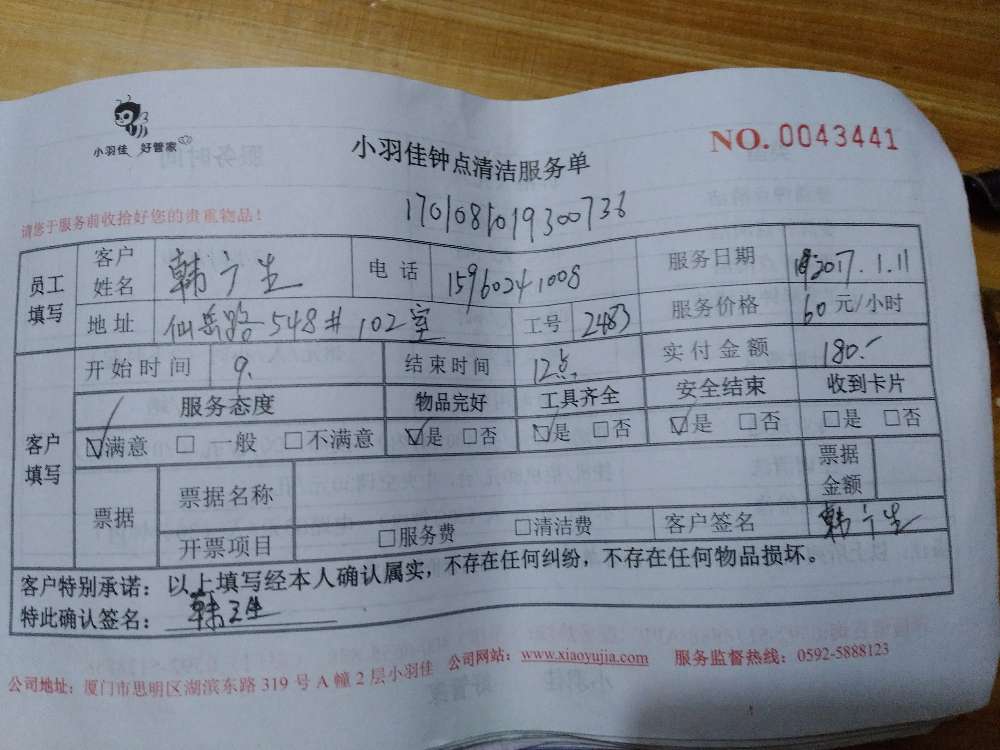 小羽佳 好管家
小羽佳钟点清洁服务单
NO. 0043441
1701081019300736
请您于服务前收拾好您的贵重物品！
员工填写 客户姓名 韩广生 电话 15960241008 服务日期 2017.1.11
地址 仙岳路548# 102室 工号 2483 服务价格 60元/小时
客户填写 开始时间 9. 结束时间 12点 实付金额 180.-
服务态度 物品完好 工具齐全 安全结束 收到卡片
☑满意 □一般 □不满意 ☑是 □否 ☑是 □否 ☑是 □否 □是 □否
票据 票据名称 票据金额
开票项目 □服务费 □清洁费 客户签名 韩广生
客户特别承诺：以上填写经本人确认属实，不存在任何纠纷，不存在任何物品损坏。
特此确认签名：韩卫生
公司地址：厦门市思明区湖滨东路319号A幢2层小羽佳 公司网站：www.xiaoyujia.com 服务监督热线：0592-5888123